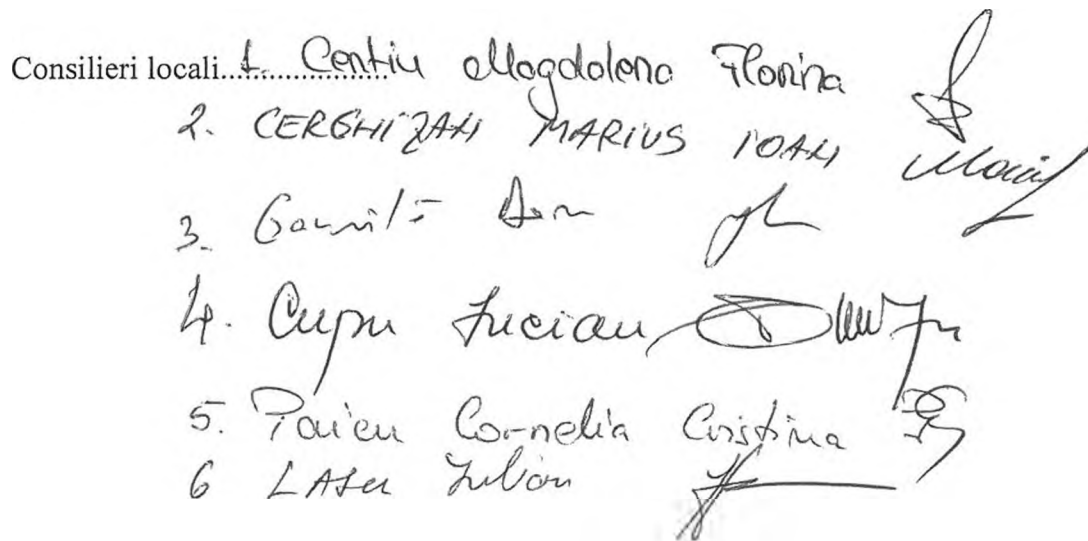 Consilieri locali..1. Centiu Magdalena Florina
2. CERGHIZAN MARIUS IOAN
3. Gavrilă
4. Cupu Lucian
5. Paicu Cornelia Cristina
6 Iulian